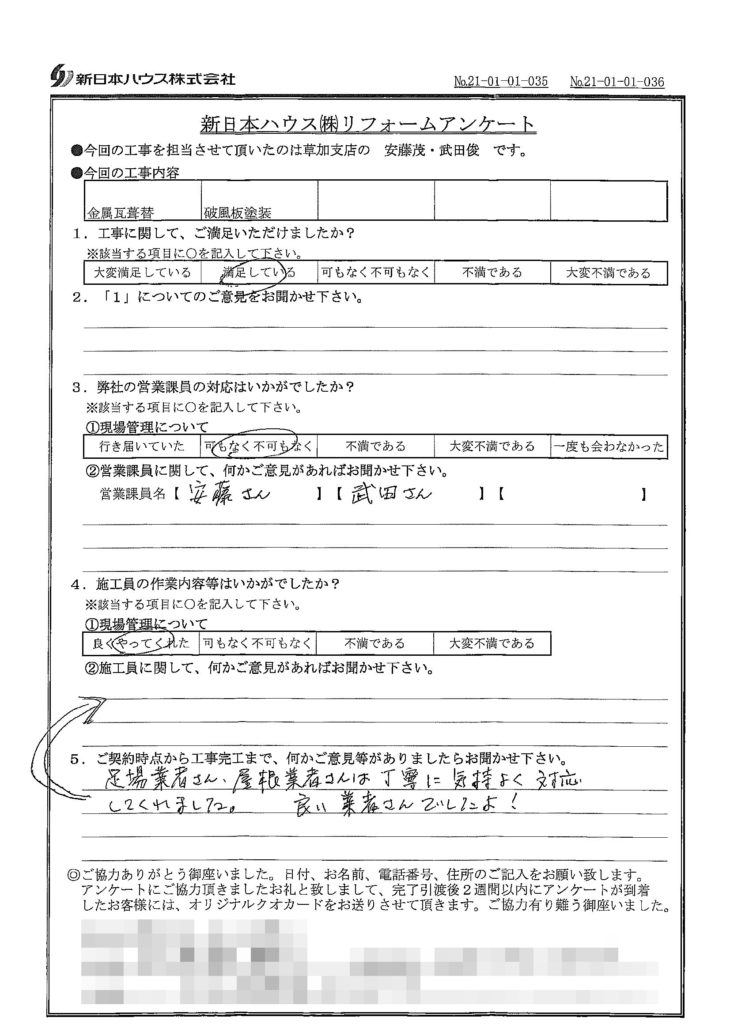 新日本ハウス株式会社 №21-01-01-035 №21-01-01-036
新日本ハウス㈱リフォームアンケート
●今回の工事を担当させて頂いたのは草加支店の 安藤茂・武田俊 です。
●今回の工事内容
金属瓦葺替 破風板塗装
1．工事に関して、ご満足いただけましたか？
※該当する項目に○を記入して下さい。
大変満足している 満足している 可もなく不可もなく 不満である 大変不満である
2．「1」についてのご意見をお聞かせ下さい。
3．弊社の営業課員の対応はいかがでしたか？
※該当する項目に○を記入して下さい。
①現場管理について
行き届いていた 可もなく不可もなく 不満である 大変不満である 一度も会わなかった
②営業課員に関して、何かご意見があればお聞かせ下さい。
営業課員名【 安藤さん 】【 武田さん 】【 】
4．施工員の作業内容等はいかがでしたか？
※該当する項目に○を記入して下さい。
①現場管理について
良くやってくれた 可もなく不可もなく 不満である 大変不満である
②施工員に関して、何かご意見があればお聞かせ下さい。
5．ご契約時点から工事完工まで、何かご意見等がありましたらお聞かせ下さい。
足場業者さん、屋根業者さんは丁寧に気持よく対応
してくれました。 良い業者さんでしたよ！
◎ご協力ありがとう御座いました。日付、お名前、電話番号、住所のご記入をお願い致します。
アンケートにご協力頂きましたお礼と致しまして、完了引渡後2週間以内にアンケートが到着
したお客様には、オリジナルクオカードをお送りさせて頂きます。ご協力有り難う御座いました。